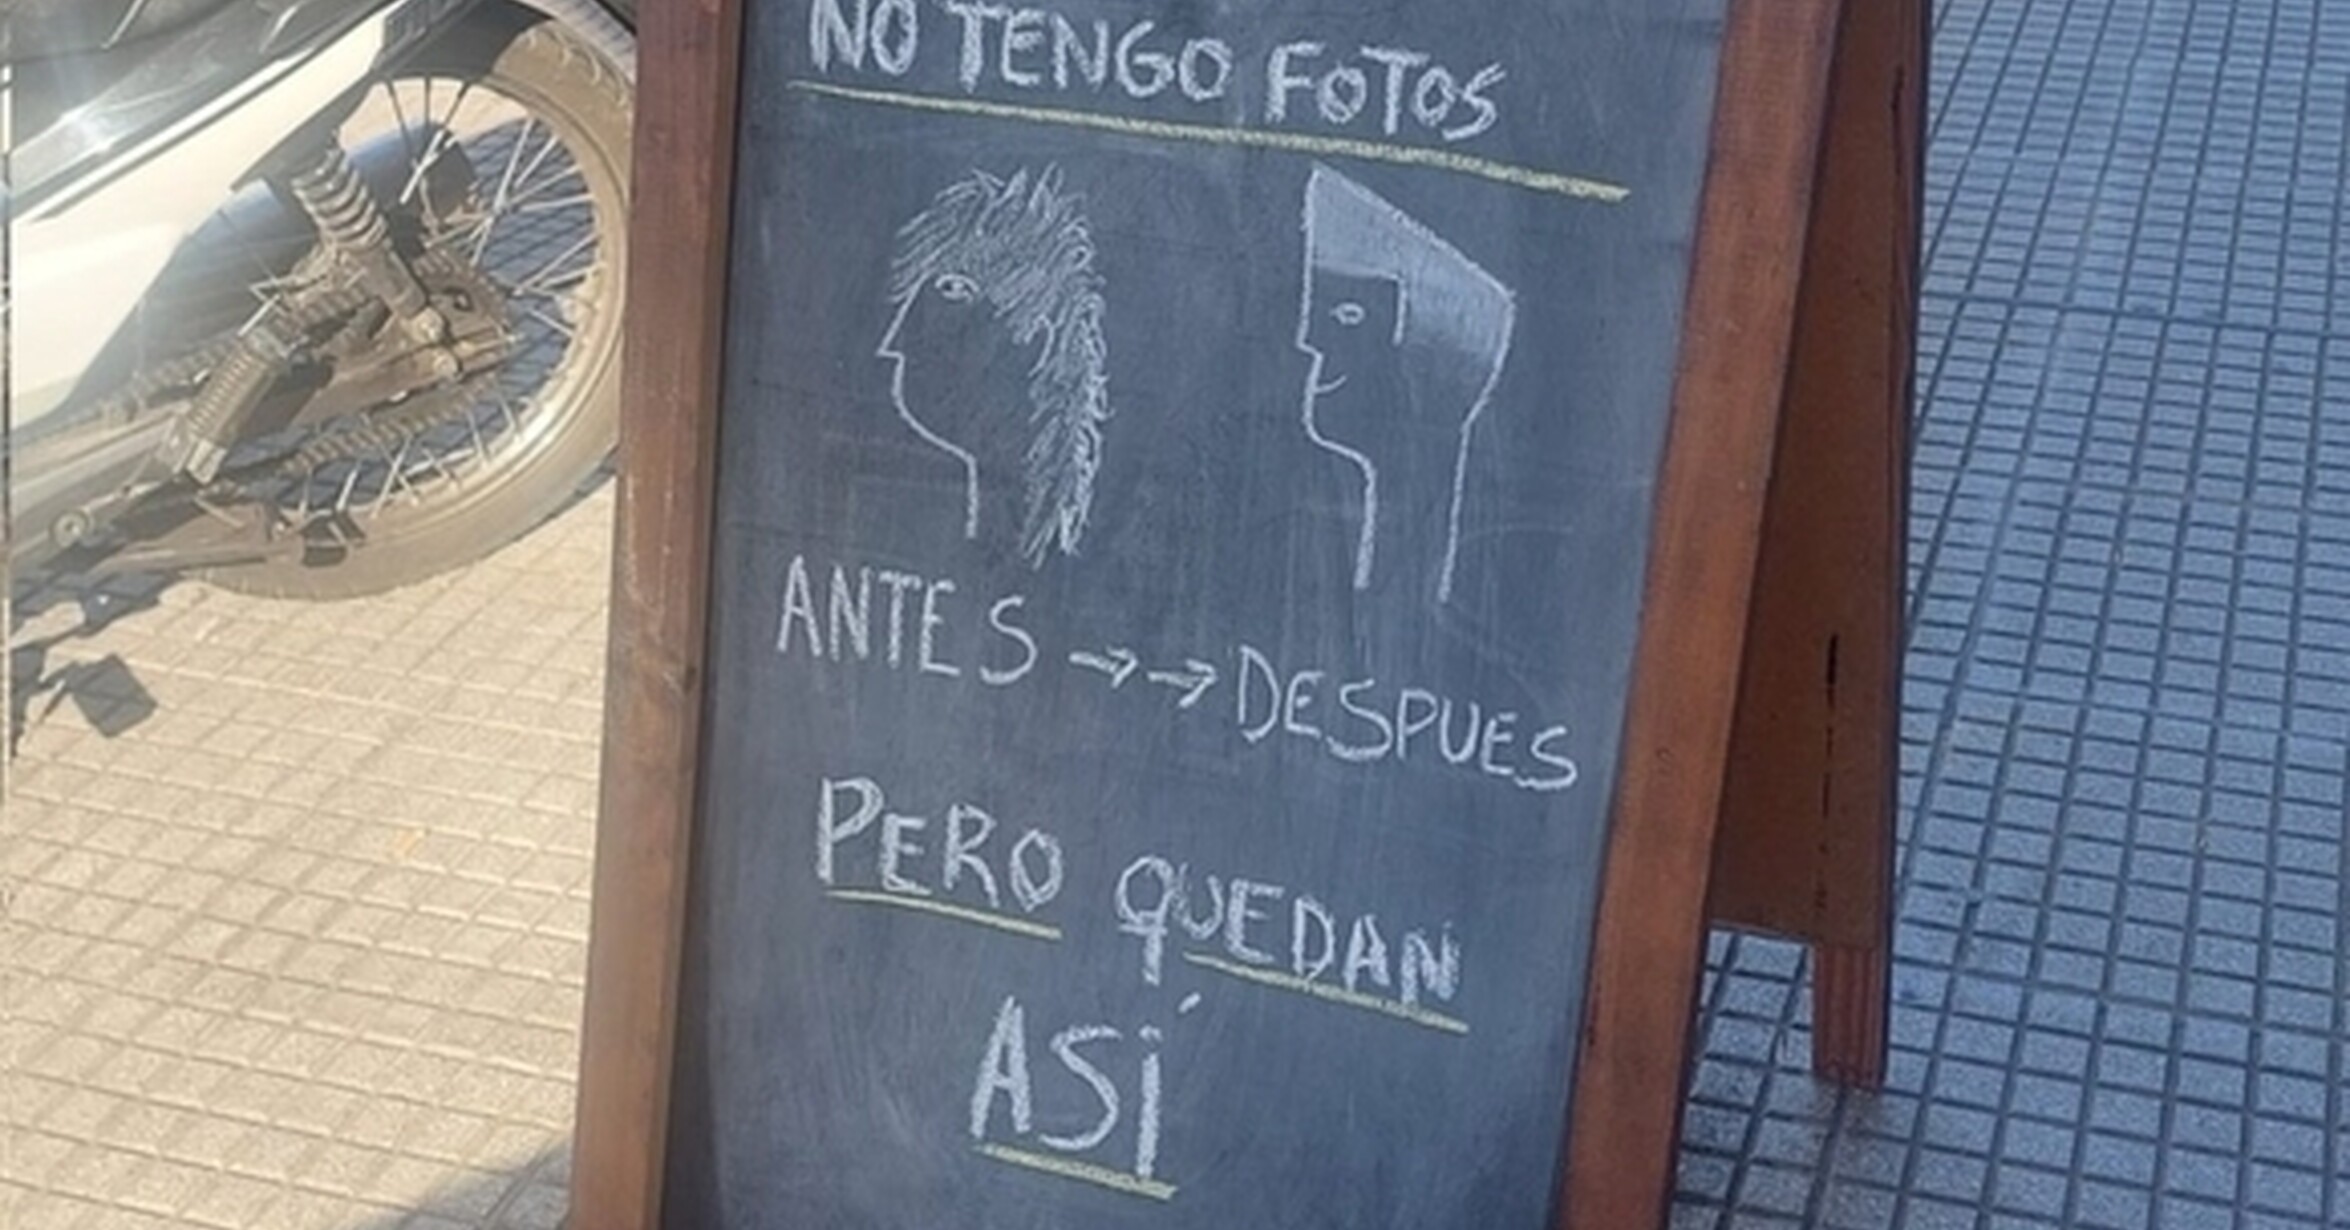 NO TENGO FOTOS
ANTES →→ DESPUES
PERO QUEDAN
ASÍ